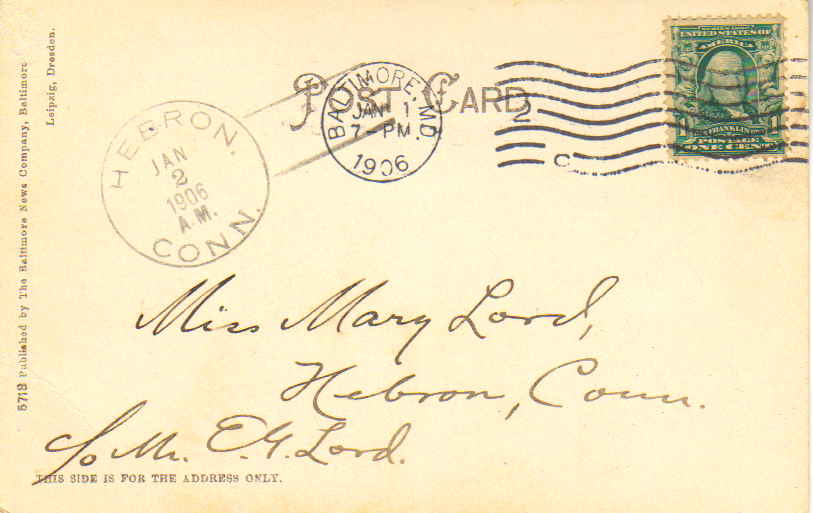 POST CARD
BALTIMORE, MD.
JAN 1
7-PM
1906
2
C
UNITED STATES OF
AMERICA
1 FRANKLIN 1
POSTAGE
ONE CENT
HEBRON,
JAN
2
1906
A.M.
CONN.
Miss Mary Lord,
Hebron, Conn.
c/o Mr. E.G. Lord.
THIS SIDE IS FOR THE ADDRESS ONLY.
5713 Published by The Baltimore News Company, Baltimore
Leipzig, Dresden.